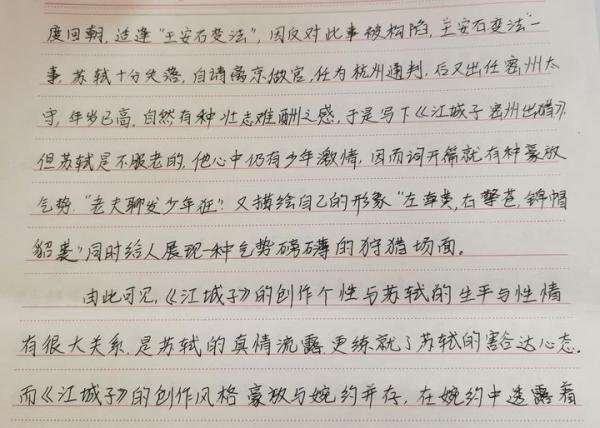 度回朝,适逢“王安石变法”,因反对此事被构陷,王安石变法”一
事,苏轼十分失落,自请离京做官,任为杭州通判,后又出任密州太
守,年岁已高,自然有种壮志难酬之感,于是写下《江城子 密州出猎》,
但苏轼是不服老的,他心中仍有少年激情,因而词开篇就有种豪放
气势.“老夫聊发少年狂”.又描绘自己的形象“左牵黄,右擎苍,锦帽
貂裘”同时给人展现一种气势磅礴的狩猎场面。
由此可见,《江城子》的创作个性与苏轼的生平与性情
有很大关系,是苏轼的真情流露,更练就了苏轼的割合达心态.
而《江城子》的创作风格豪放与婉约并存,在婉约中透露着